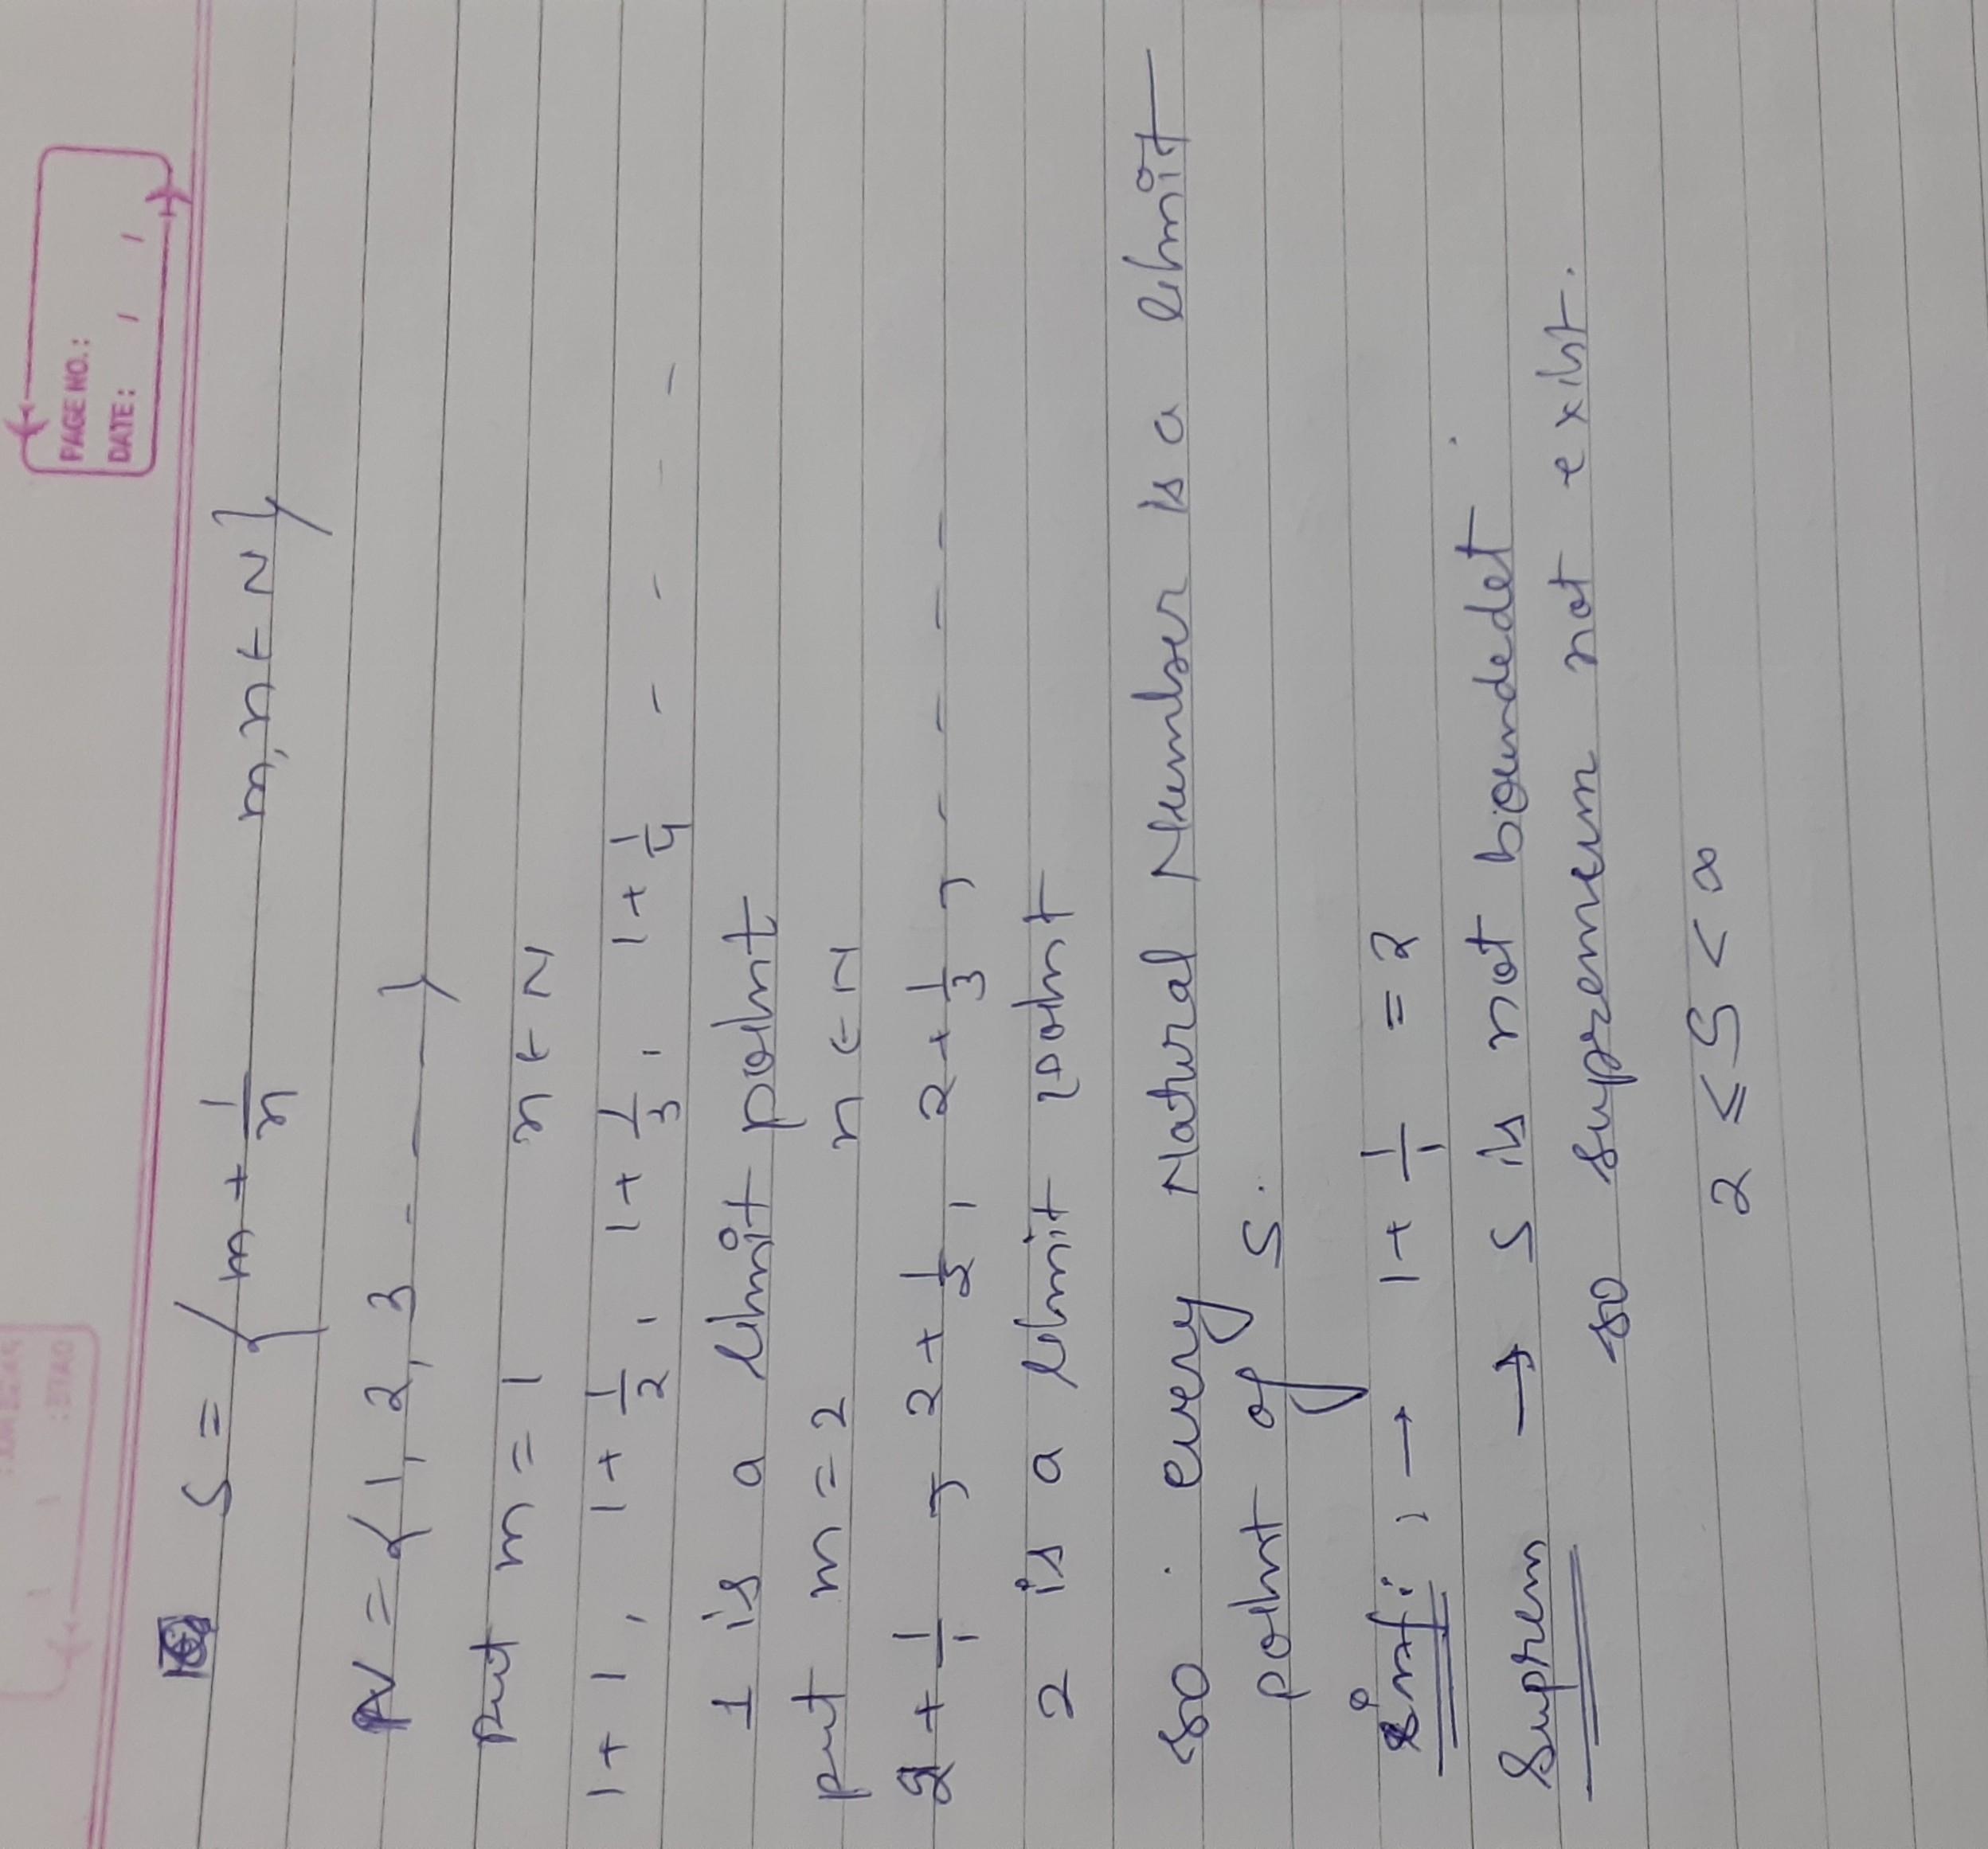 PAGE NO.:
DATE: / /
S = { m + 1/n m, n ∈ N }
N = { 1, 2, 3 - — — }
put m = 1 n ∈ N
1 + 1, 1 + 1/2, 1 + 1/3, 1 + 1/4 - - - -
1 is a limit point
put m = 2 n ∈ N
2 + 1/1, 2 + 1/2, 2 + 1/3, - - - -
2 is a limit point
so every Natural Number is a limit
point of S.
infi; → 1 + 1/1 = 2
Suprem → S is not boundedet
so supremeum not exist.
2 ≤ S < ∞